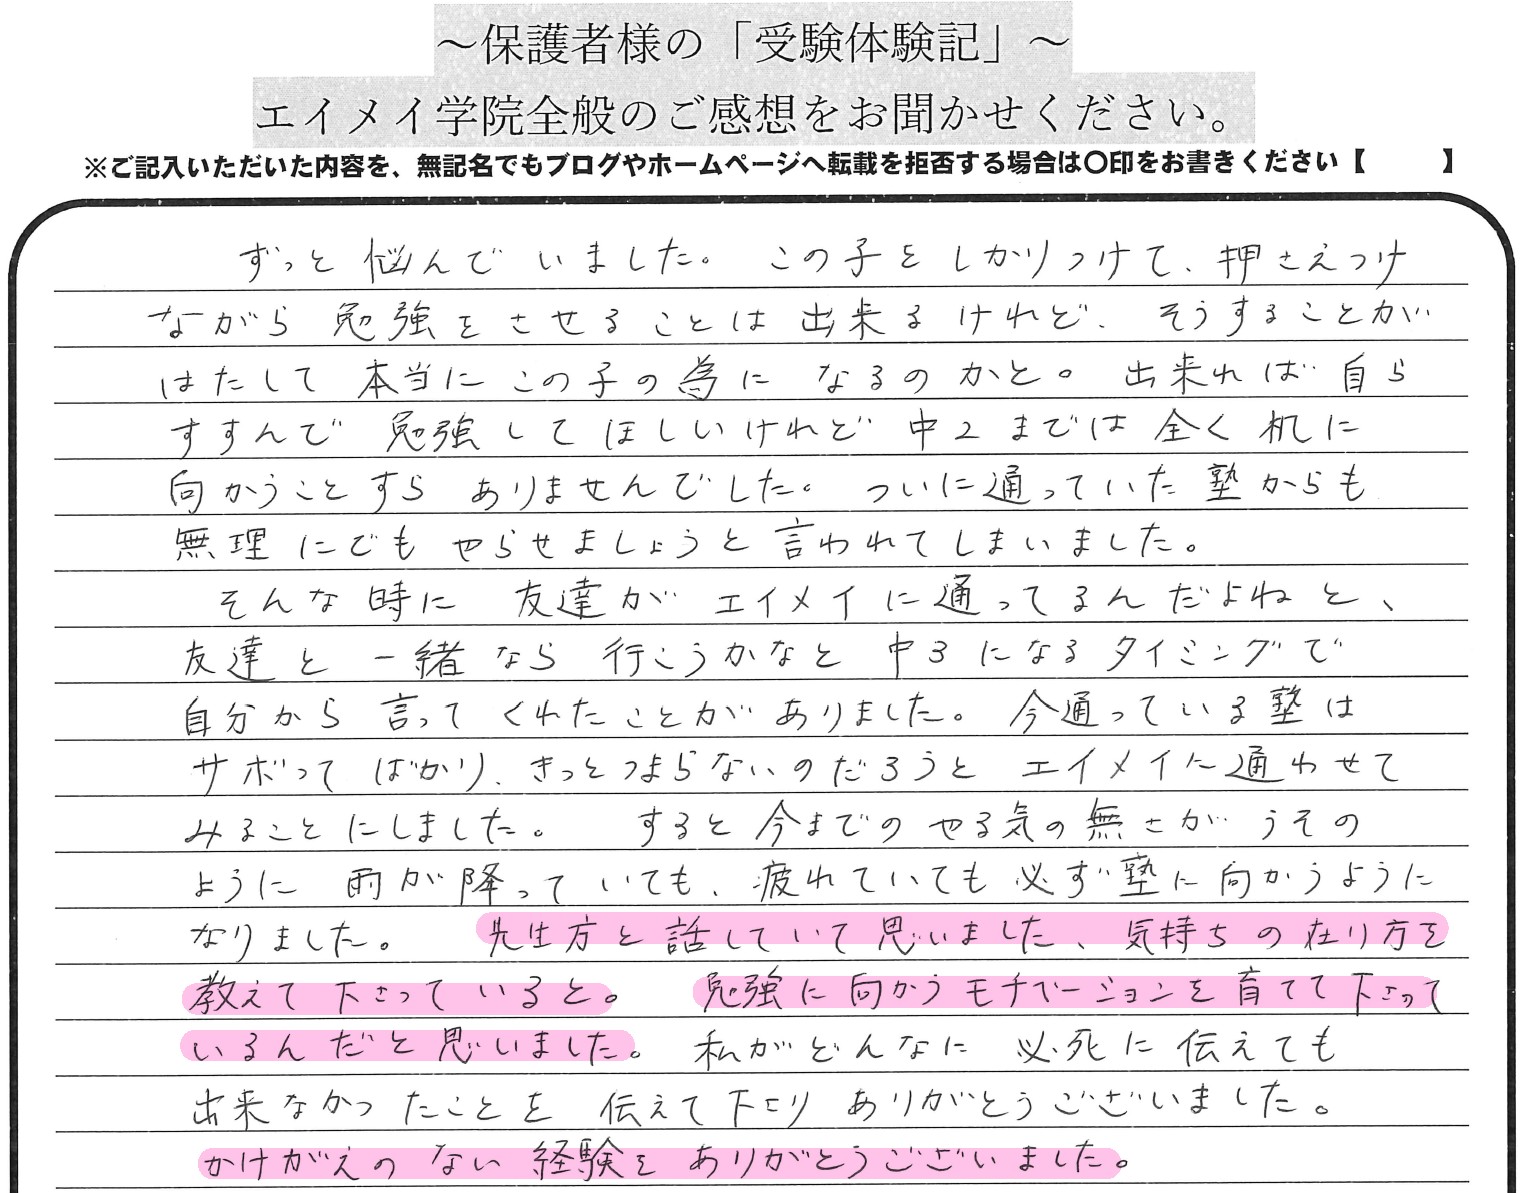 ～保護者様の「受験体験記」～
エイメイ学院全般のご感想をお聞かせください。
※ご記入いただいた内容を、無記名でもブログやホームページへ転載を拒否する場合は〇印をお書きください【　　　】
ずっと悩んでいました。この子をしかりつけて、押さえつけ
ながら勉強をさせることは出来るけれど、そうすることが
はたして本当にこの子の為になるのかと。出来れば自ら
すすんで勉強してほしいけれど中2までは全く机に
向かうことすらありませんでした。ついに通っていた塾からも
無理にでもやらせましょうと言われてしまいました。
そんな時に友達がエイメイに通ってるんだよねと、
友達と一緒なら行こうかなと中3になるタイミングで
自分から言ってくれたことがありました。今通っている塾は
サボってばかり、きっとつまらないのだろうとエイメイに通わせて
みることにしました。すると今までのやる気の無さがうその
ように雨が降っていても、疲れていても必ず塾に向かうように
なりました。先生方と話していて思いました、気持ちの在り方を
教えて下さっていると。勉強に向かうモチベーションを育てて下さって
いるんだと思いました。私がどんなに必死に伝えても
出来なかったことを伝えて下さりありがとうございました。
かけがえのない経験をありがとうございました。